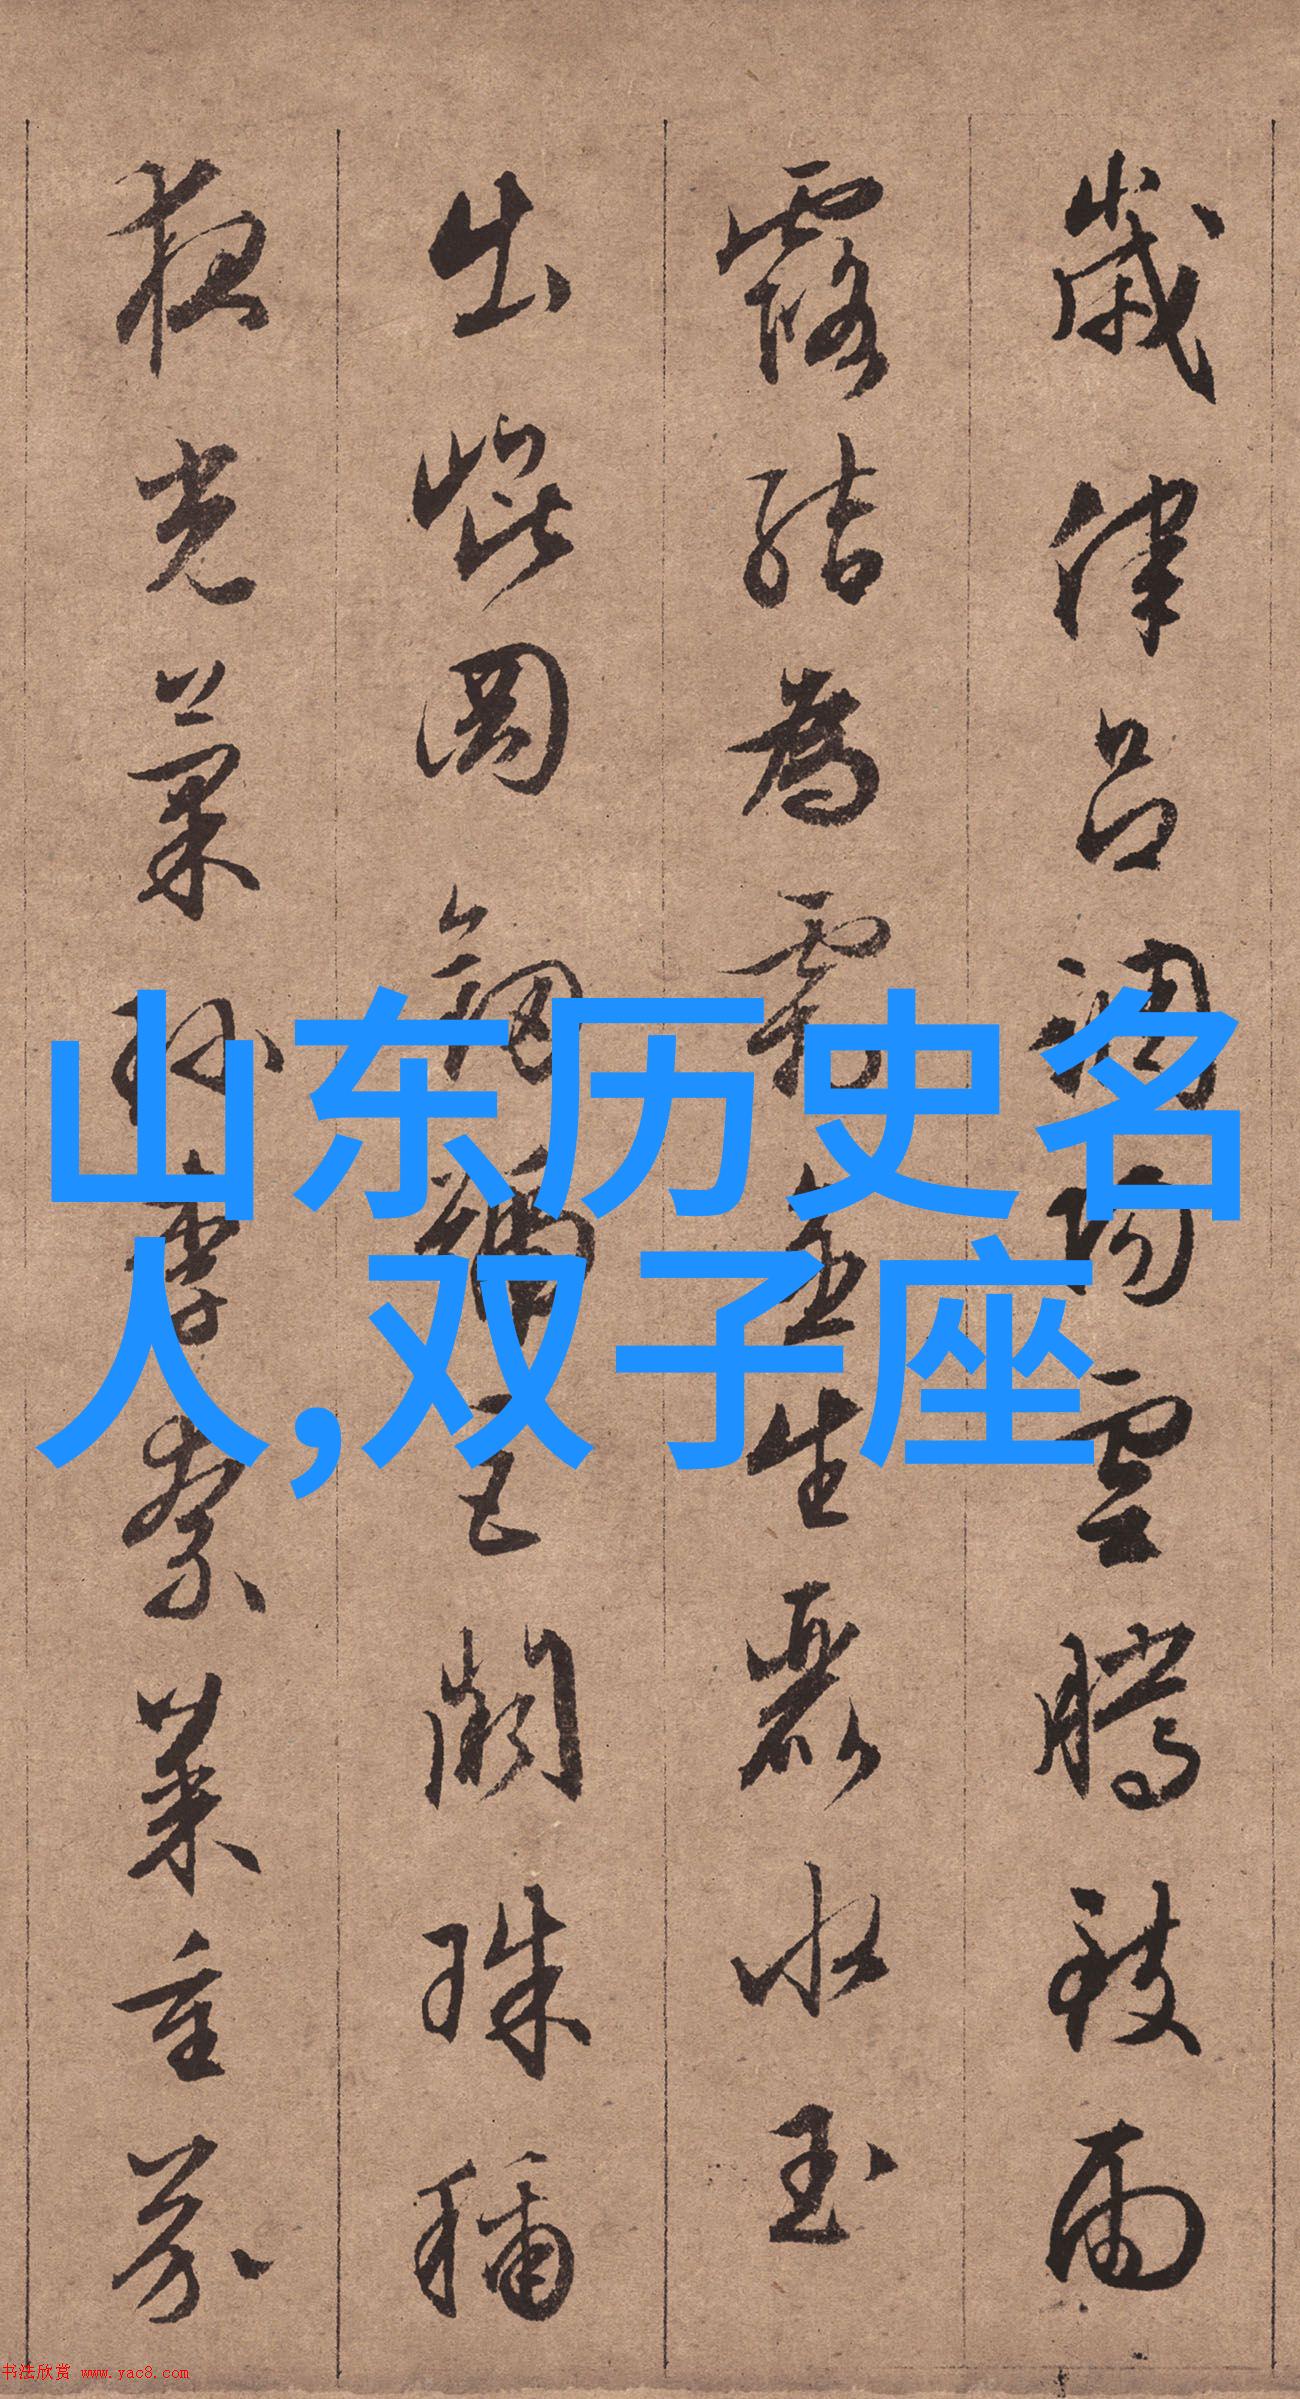 歲律吕調陽雲騰致雨
露結為霜金生麗水玉
出崐岡劒號巨闕珠稱
夜光菓珎李柰菜重芥
山东历史名
人,双子座
书法欣赏 www.yac8.com